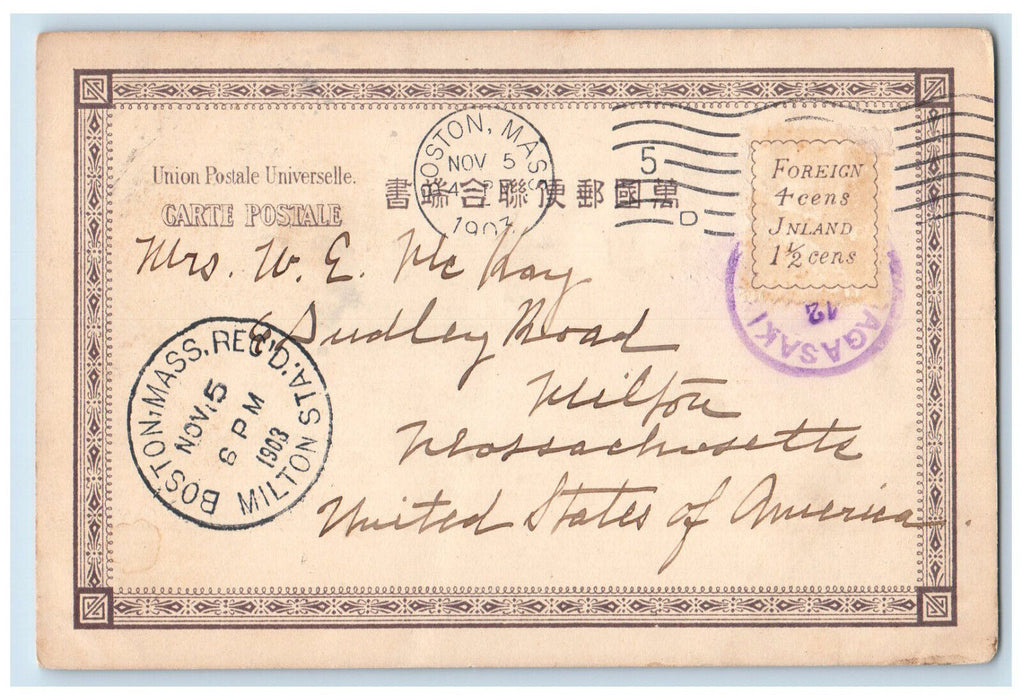 Union Postale Universelle.
CARTE POSTALE
書端聯合便郵國萬
BOSTON, MASS
NOV 5
4 P
1903
5
D
FOREIGN
4 cens
INLAND
1½ cens
NAGASAKI
12
Mrs. W. E. McKay
Dudley Road
Milton
Massachusetts
United States of America.
BOSTON, MASS. REC'D.
NOV. 5
6 PM
1903
MILTON STA.